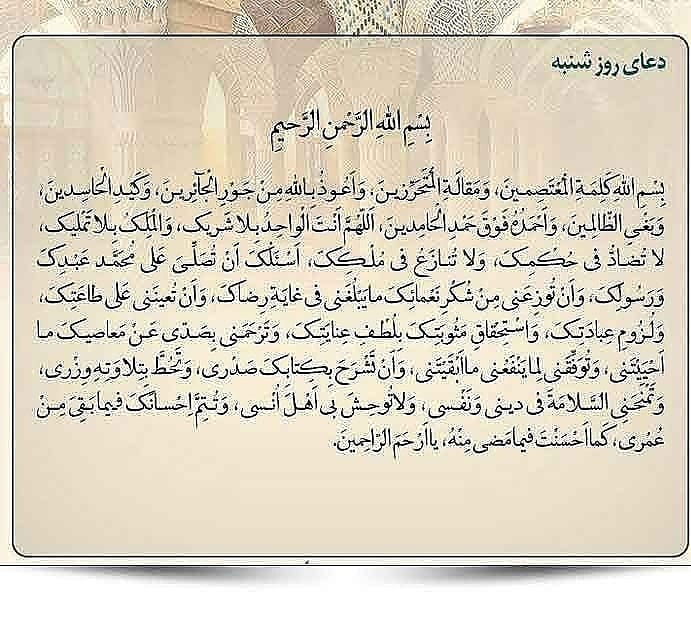 دعای روز شنبه
بِسْمِ اللهِ الرَّحْمنِ الرَّحیمِ
بِسْمِ اللهِ کَلِمَةِ الْمُعْتَصِمینَ، وَ مَقالَةِ الْمُتَحَرِّزینَ، وَ اَعُوذُ بِاللهِ مِنْ جَوْرِ الْجآئِرینَ، وَ کَیْدِ الْحاسِدینَ،
وَ بَغْیِ الظّالِمینَ، وَ اَحْمَدُهُ فَوْقَ حَمْدِ الْحامِدینَ، اَللّهُمَّ اَنْتَ الْواحِدُ بِلا شَریکٍ، وَ الْمَلِکُ بِلا تَمْلیکٍ،
لا تُضادُّ فی حُکْمِکَ، وَ لا تُنازَعُ فی مُلْکِکَ، اَسْئَلُکَ اَنْ تُصَلِّیَ عَلی مُحَمَّدٍ عَبْدِکَ
وَ رَسُولِکَ، وَ اَنْ تُوزِعَنی مِنْ شُکْرِ نَعْمائِکَ ما یَبْلُغُنی فی غایَةَ رِضاکَ، وَ اَنْ تُعینَنی عَلی طاعَتِکَ،
وَ لُزُومِ عِبادَتِکَ، وَ اسْتِحْقاقِ مَثُوبَتِکَ بِلُطْفِ عِنایَتِکَ، وَ تَرْحَمَنی بِصَدّی عَنْ مَعاصیکَ ما
اَحْیَیْتَنی، وَ تُوَفِّقَنی لِما یَنْفَعُنی ما اَبْقَیْتَنی، وَ اَنْ تَشْرَحَ بِکِتابِکَ صَدْری، وَ تَحُطَّ بِتِلاوَتِهِ وِزْری،
وَ تَمْنَحَنِی السَّلامَةَ فی دینی وَ نَفْسی، وَ لا تُوحِشَ بی اَهْلَ اُنْسی، وَ تُتِمَّ اِحْسانَکَ فیما بَقِیَ مِنْ
عُمْری، کَما اَحْسَنْتَ فیما مَضی مِنْهُ، یا اَرْحَمَ الرّاحِمینَ.